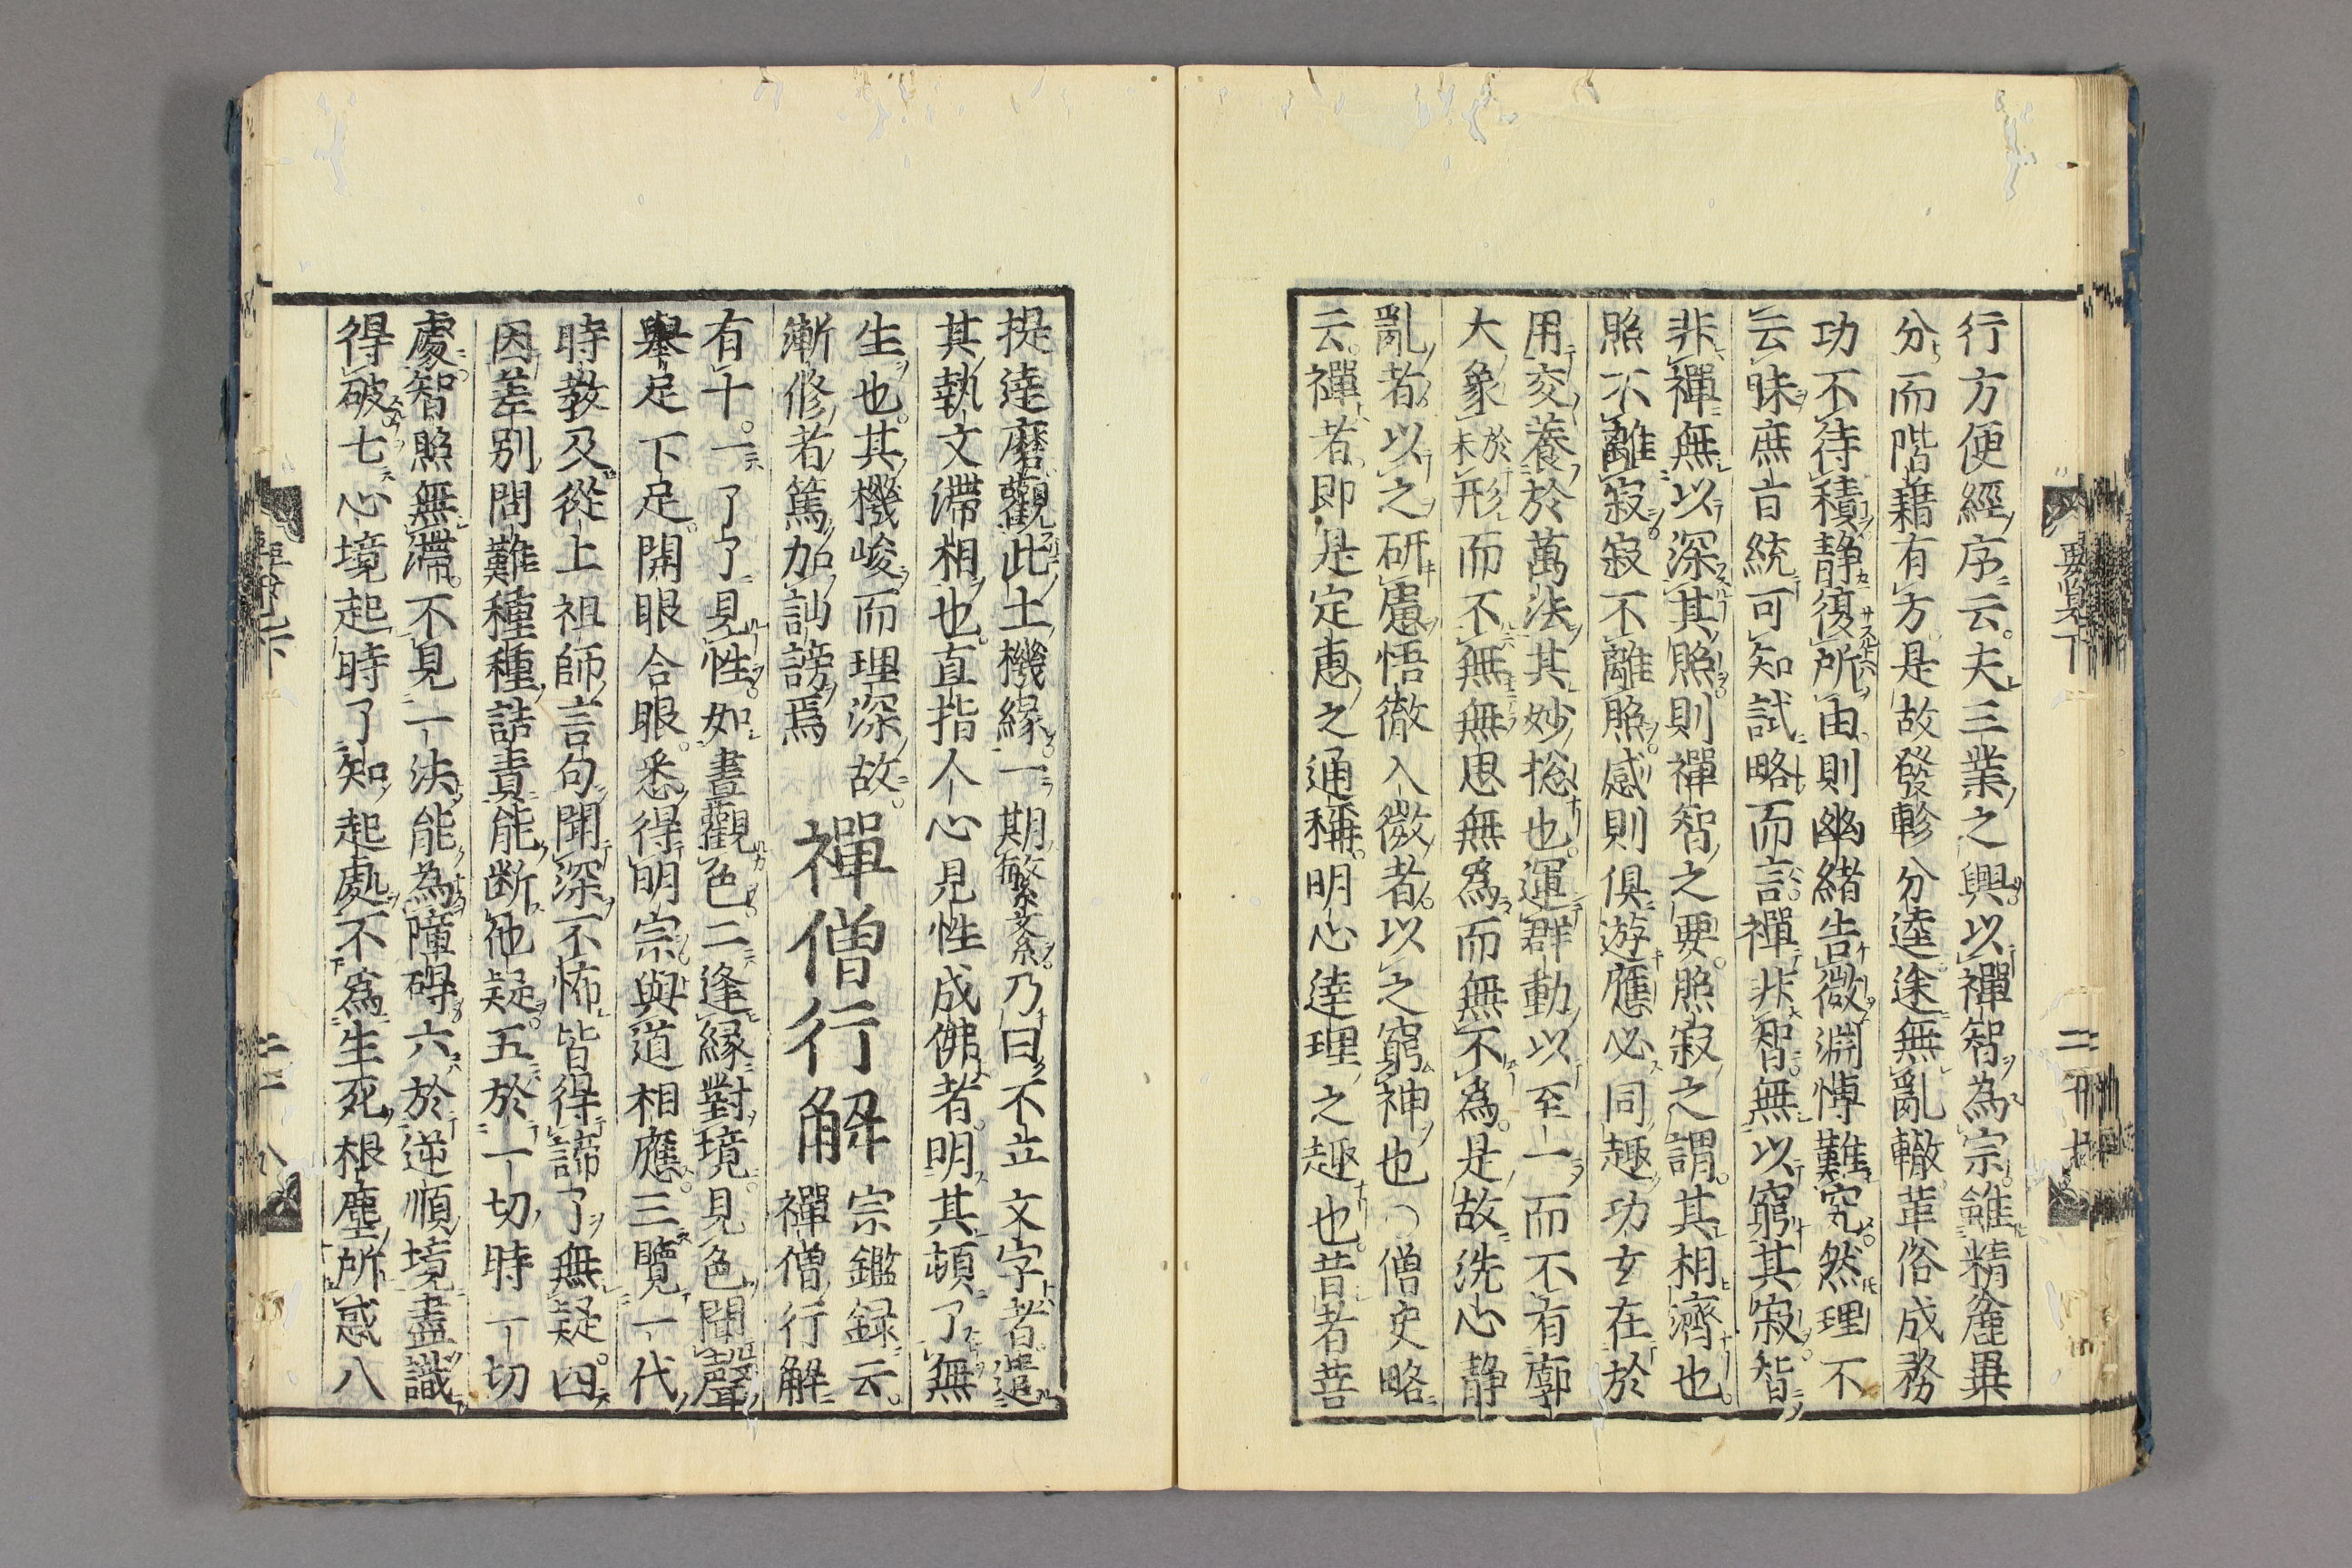 行方便經序云夫三業之興以禪智為宗雖精麁異
分而階藉有方是故發軫分逵途無亂轍革俗成務
功不待積静復所由則幽緒告微淵慱難究然理不
云昧庶旨統可知試略而言禪非智無以窮其寂智
非禪無以深其照則禪智之要照寂之謂其相濟也
照不離寂寂不離照感則俱遊應必同趣功玄在於
用交養於萬法其妙捴也運群動以至一而不有廓
大象於未形而不無無思無爲而無不為是故洗心静
亂者以之研慮悟徹入微者以之窮神也〇僧史略
云禪者即是定恵之通稱明心逹理之趣也昔者菩
提逹磨觀此土機緣一期繁紊乃曰不立文字者遣
其執文滯相也直指人心見性成佛者明其頓了無
生也其機峻而理深故
漸修者篤加訕謗焉
禪僧行解
宗鑑録云
禪僧行解
有十一了了見性如晝觀色二逢緣對境見色聞聲
舉足下足開眼合眼悉得明宗與道相應三覽一代
時教及從上祖師言句聞深不怖皆得諦了無疑四
因差别問難種種詰責能断他疑五於一切時一切
處智照無滯不見一法能為障碍六於逆順境盡識
得破七心境起時了知起處不爲生死根塵所惑八